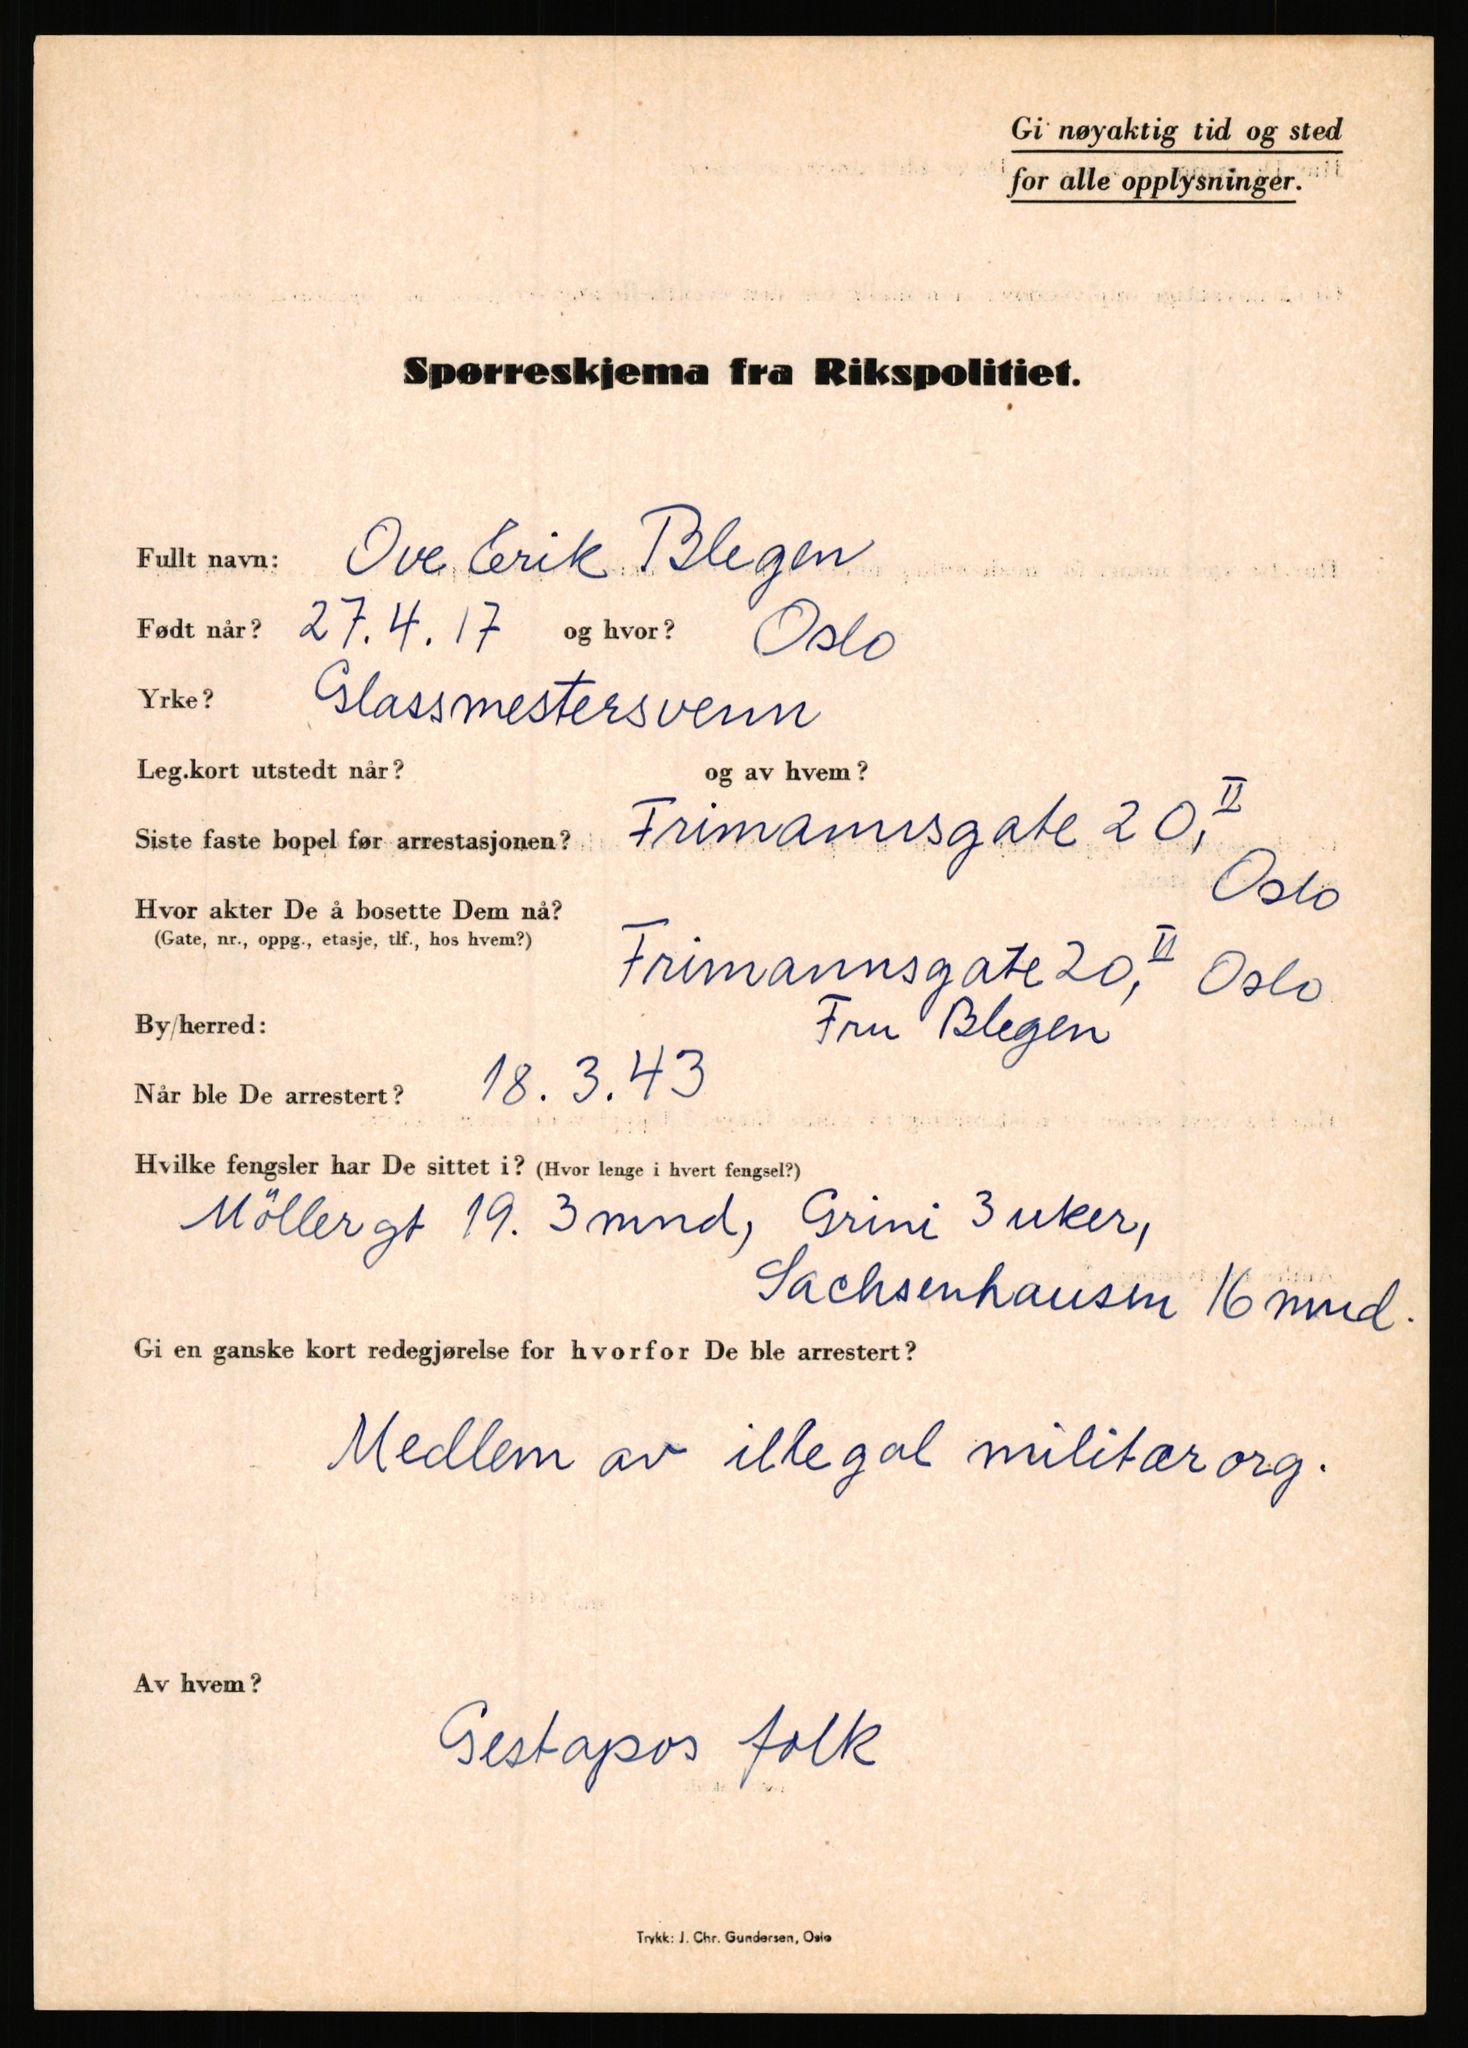 Gi nøyaktig tid og sted
for alle opplysninger.
Spørreskjema fra Rikspolitiet.
Fullt navn: Ove Erik Blegen
Født når? 27.4.17 og hvor? Oslo
Yrke? Glassmestersvenn
Leg.kort utstedt når? og av hvem?
Siste faste bopel før arrestasjonen? Frimannsgate 20, II
Oslo
Hvor akter De å bosette Dem nå?
(Gate, nr., oppg., etasje, tlf., hos hvem?)
Frimannsgate 20, II Oslo
By/herred: Fru Blegen
Når ble De arrestert? 18.3.43
Hvilke fengsler har De sittet i? (Hvor lenge i hvert fengsel?)
Möllergt 19. 3 mnd, Grini 3 uker,
Sachsenhausen 16 mnd.
Gi en ganske kort redegjørelse for hvorfor De ble arrestert?
Medlem av illegal militær org.
Av hvem?
Gestapos folk
Trykk: J. Chr. Gundersen, Oslo